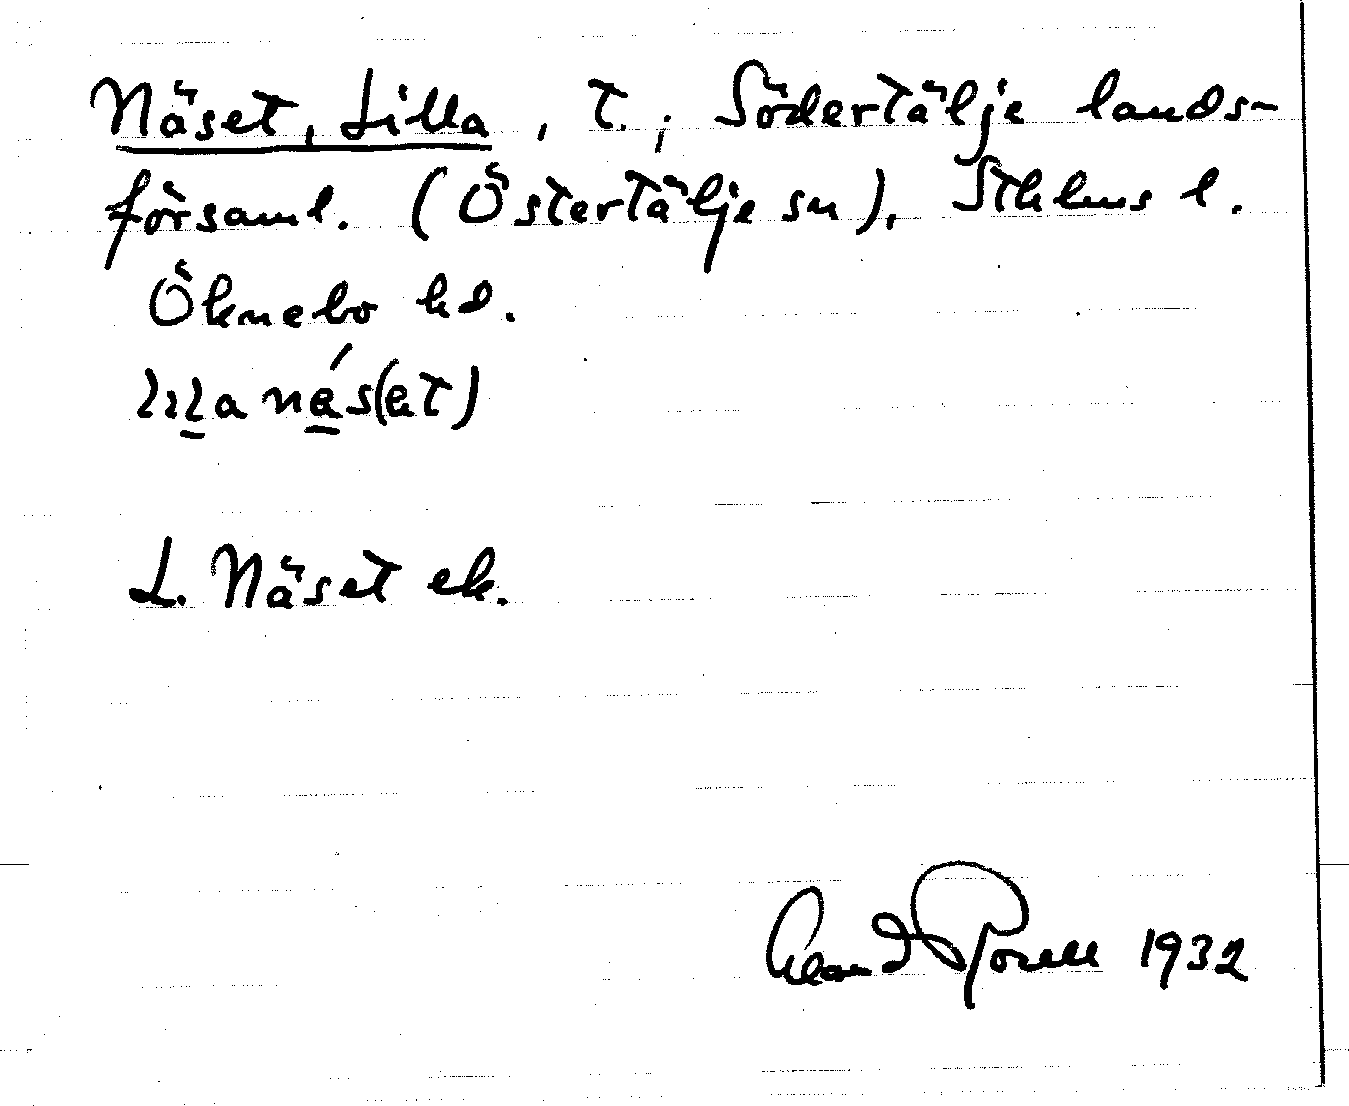 Näset, Lilla, t., Södertälje lands-
församl. (Östertälje sn), Sthlms l.
Öknebo hd.
nás(et)
L. Näset ek.
1932